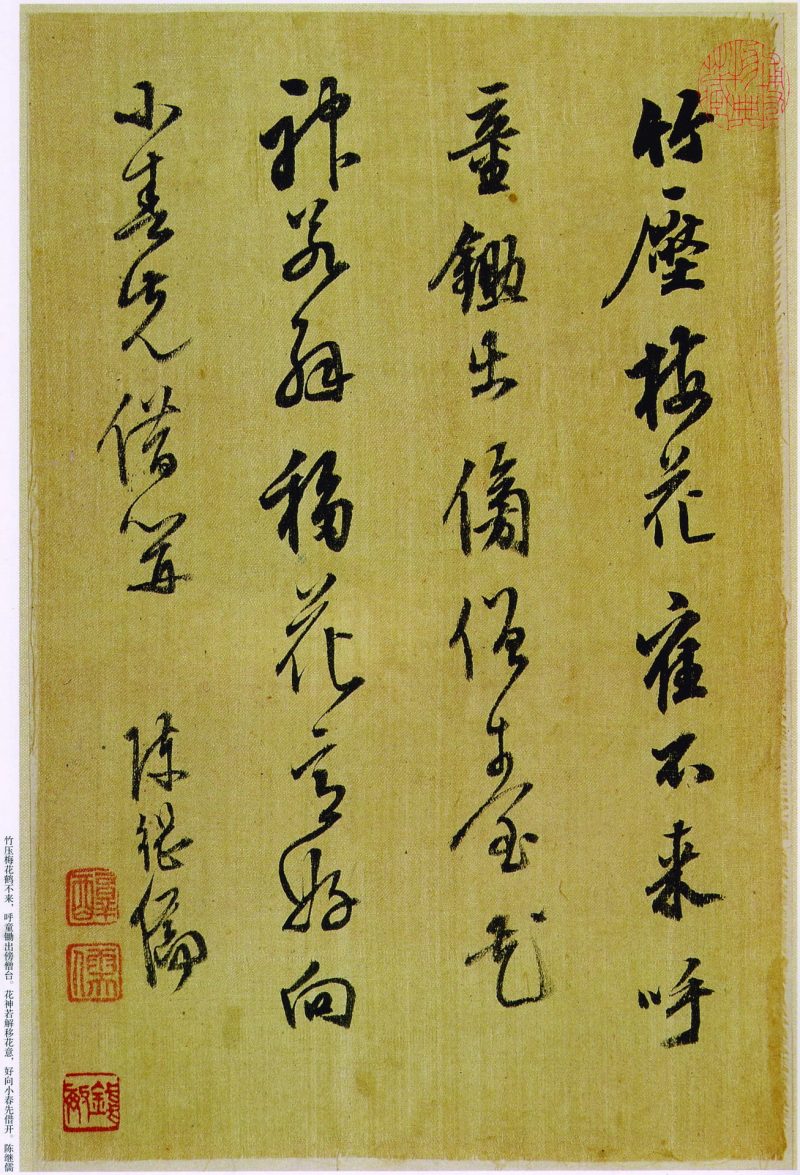 竹壓梅花隺不来呼
童鋤出傍僧臺花
神若解移花意好向
小春先借開
陳繼儒
竹压梅花鹤不来，呼童锄出傍僧台。花神若解移花意，好向小春先借开。 陈继儒